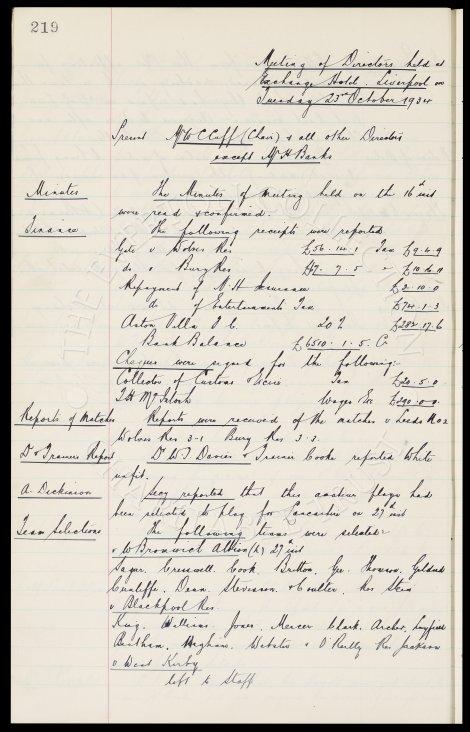 219
Meeting of Directors held at
Exchange Hotel. Liverpool on
Tuesday 23rd October 1934
Present Mr W C Cuff (Chair) & all other Directors
except Mr H Banks
Minutes The Minutes of meeting held on the 16th inst
were read & confirmed.
Finance The following receipts were reported
Gate v Wolves Res £56. 14. 1 Tax £9. 4. 9
do v Bury Res 7. 5 " £10. 16. 11
Repayment of N. H. Insurance £2. 10. 0
do of Entertainments Tax £74. 1. 3
Aston Villa F. C. 20% £282. 17. 6
Bank Balance £6510. 1. 5. Cr
Cheques were signed for the following:-
Collector of Customs & Excise Tax £20. 5. 0
T. H. McIntosh Wages Etc £290. 0. 0
Reports of Matches Reports were received of the matches v Leeds
Wolves Res 3-1 Bury Res 3. 3.
Dr & Trainers Report Dr W J Davies & Trainer Cooke reported White
unfit.
A. Dickinson Secy reported that this amateur player had
been selected to play for Lancashire on 27th inst
Team Selections The following teams were selected:-
v W Bromwich Albion (h) 27th inst
Sagar. Cresswell. Cook. Britton. Gee. Thomson. Geldard
Cunliffe. Dean. Stevenson. & Coulter. Res Stein
v Blackpool Res.
King. Williams. Jones. Mercer. Clark. Archer.
Bentham. Webster & O'Reilly Res Jackson
v West Kirby
left to Staff